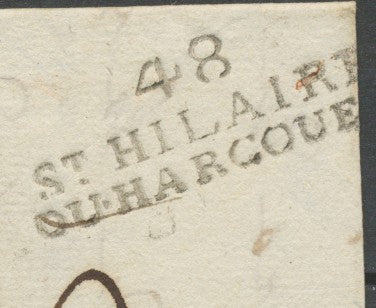 48
ST HILAIRE
DU·HARCOUE